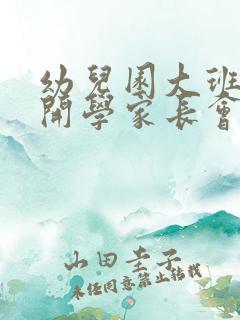 幼兒園大班
開學家長會
山田圭子
未經同意禁止轉載